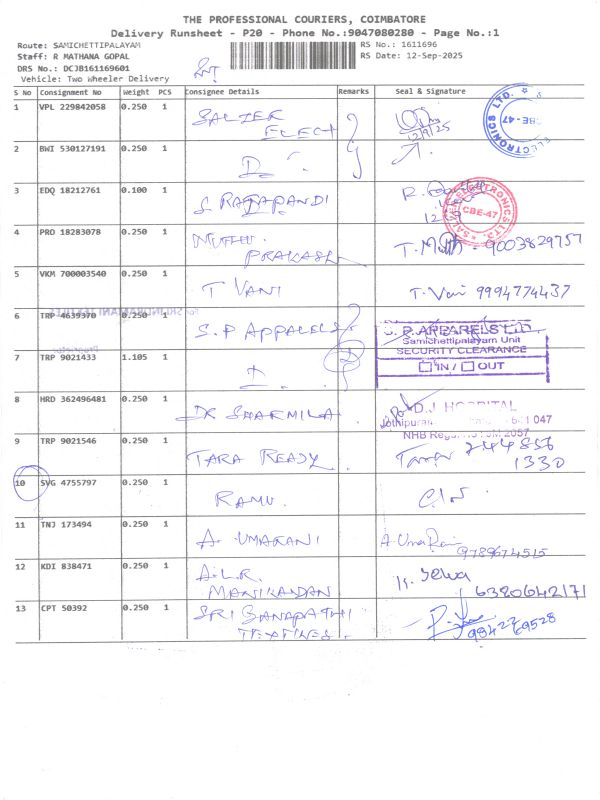 THE PROFESSIONAL COURIERS, COIMBATORE
Delivery Runsheet - P20 - Phone No.:9047080280 - Page No.:1
Route: SAMICHETTIPALAYAM
RS No.: 1611696
Staff: R MATHANA GOPAL
RS Date: 12-Sep-2025
DRS No.: DCJB161169601
Vehicle: Two Wheeler Delivery
S No Consignment No Weight PCS Consignee Details Remarks Seal & Signature
1 VPL 229842058 0.250 1 SALZER
ELECT
12/9/25
ELECTRONICS LTD. CBE-47
2 BWI 530127191 0.250 1 D
3 EDQ 18212761 0.100 1 S. RAJAPANDI R.
ELECTRONICS LTD. CBE-47
4 PRO 18283078 0.250 1 MUTHU
PRAKASH T. 9003829757
5 VKM 700003540 0.250 1 T VANI T. Vani 9994774437
6 TRP 4639370 0.250 1 S.P APPARELS
S.P.APPARELS LTD
Samichettipalayam Unit
SECURITY CLEARANCE
IN / OUT
7 TRP 9021433 1.105 1
8 HRD 362496481 0.250 1 DR SHARMILA D.J. HOSPITAL
Jothipuram 641 047
NHB Reg
9 TRP 9021546 0.250 1 TARA READY 244856
1330
10 SVG 4755797 0.250 1 RAMU
11 TNJ 173494 0.250 1 A. UMARANI A. Uma Rani
9789674515
12 KDI 838471 0.250 1 A.L.R.
MANIKANDAN K. Selva
6380642171
13 CPT 50392 0.250 1 SRI GANAPATHI
TEXTILES